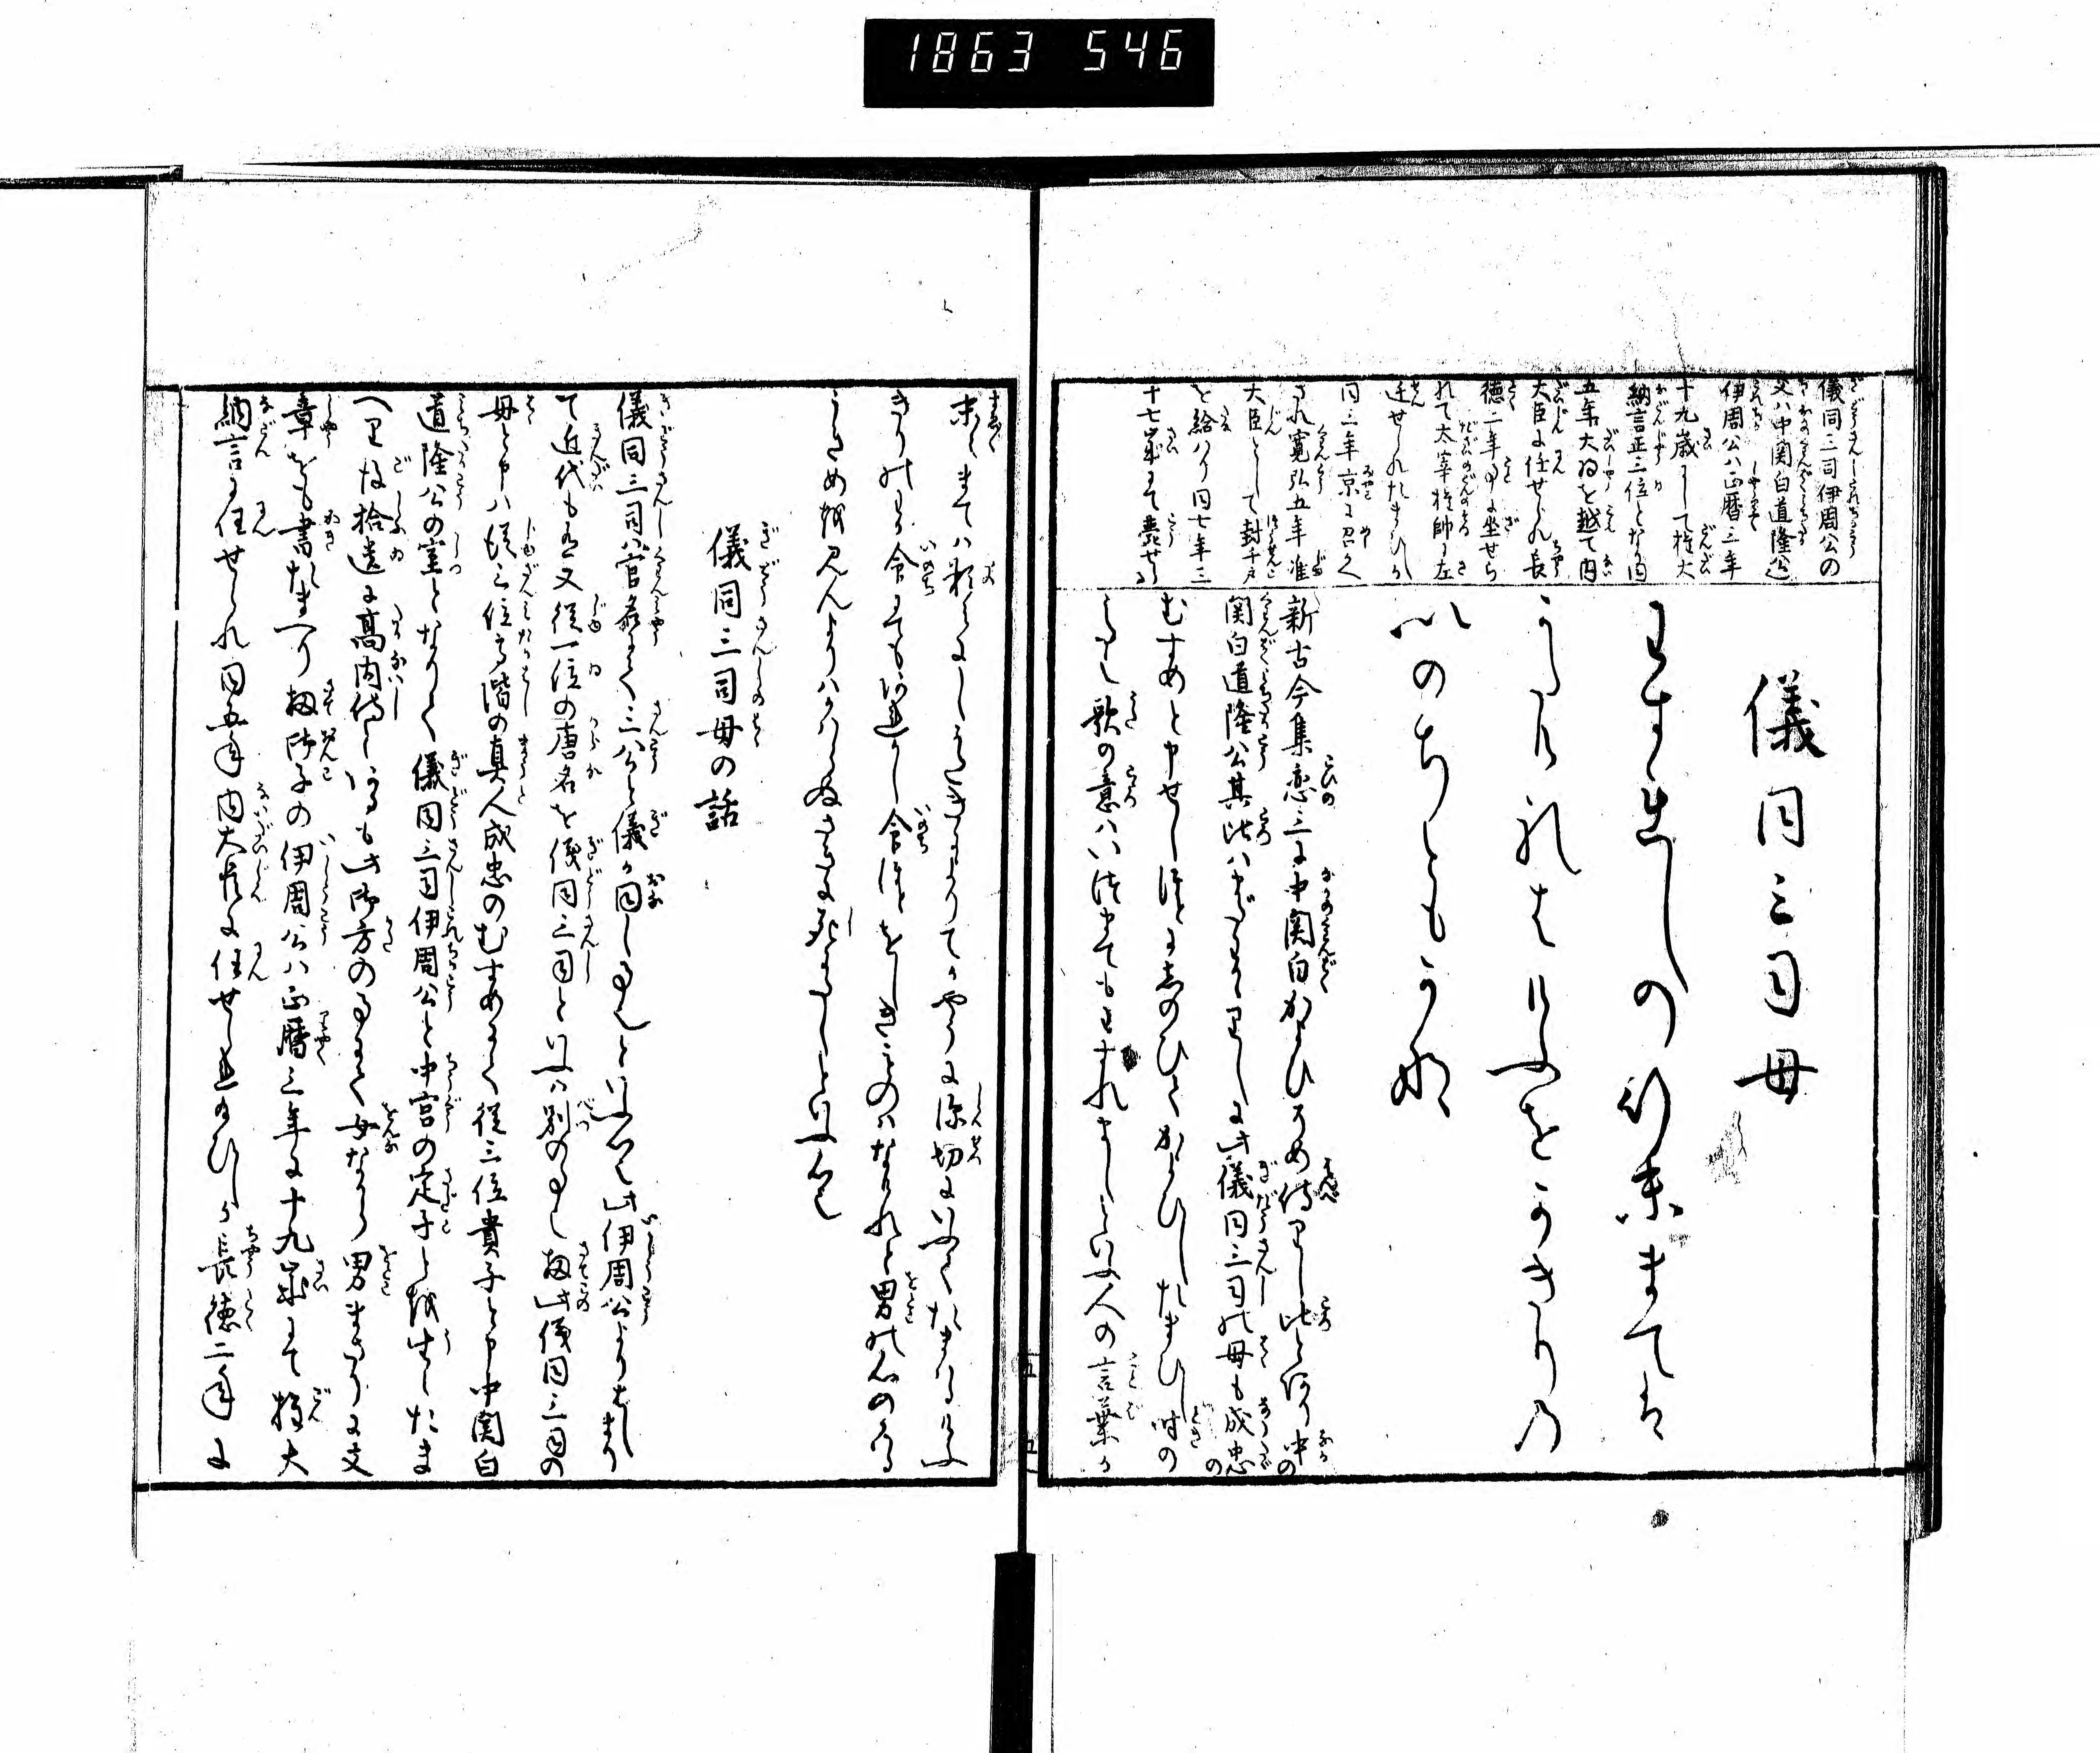 1863 546
儀同三司伊周公の
又ハ中関白道隆公
伊周公ハ正暦三年
十九歳にして権大
納言正三位となり同
五年大臣を越て内
大臣に任せられ長
徳二年事に坐せら
れて太宰権帥に左
迁せられたまひしか
同三年京に召かへ
され寛弘五年准
大臣として封千戸
を給ハり同七年三
十七歳にて薨せり
儀同三司母
わすれしの行末まては
かたけれはけふをかきりの
いのちともかな
新古今集恋三に中関白かよひそめ侍りし比とあり中の
関白道隆公其比ハまたわかかりしに此儀同三司の母も成忠の
むすめと申せしほとにしのひてかよひしたまひし時の
うたなり歌の意ハいつまてもわすれましといふ人の言葉か
末々まてハ頼みにしかたきによりてかやうに深切にいふてたまはるけふ
きりのわか命にてもあれかし命ほとをしきものハなけれと男の心のかはる
うきめを見んよりハかハらぬさきに死たしといふ心也
儀同三司母の話
儀同三司ハ官名にて三公と儀か同しき也といふ心也此伊周公よりはしまり
て近代も有又従一位の唐名を儀同三司といふハ別の事也扨此儀同三司の
母と申ハ従二位高階の真人成忠のむすめにて従三位貴子と申中関白
道隆公の室となりて儀同三司伊周公と中宮の定子とを生したま
へり後拾遺に高内侍とあるも此御方の事にて女なから男まさりに文
章をも書たまへり扨御子の伊周公ハ正暦三年に十九歳にて権大
納言に任せられ同五年内大臣に任せられたまひしか長徳二年に